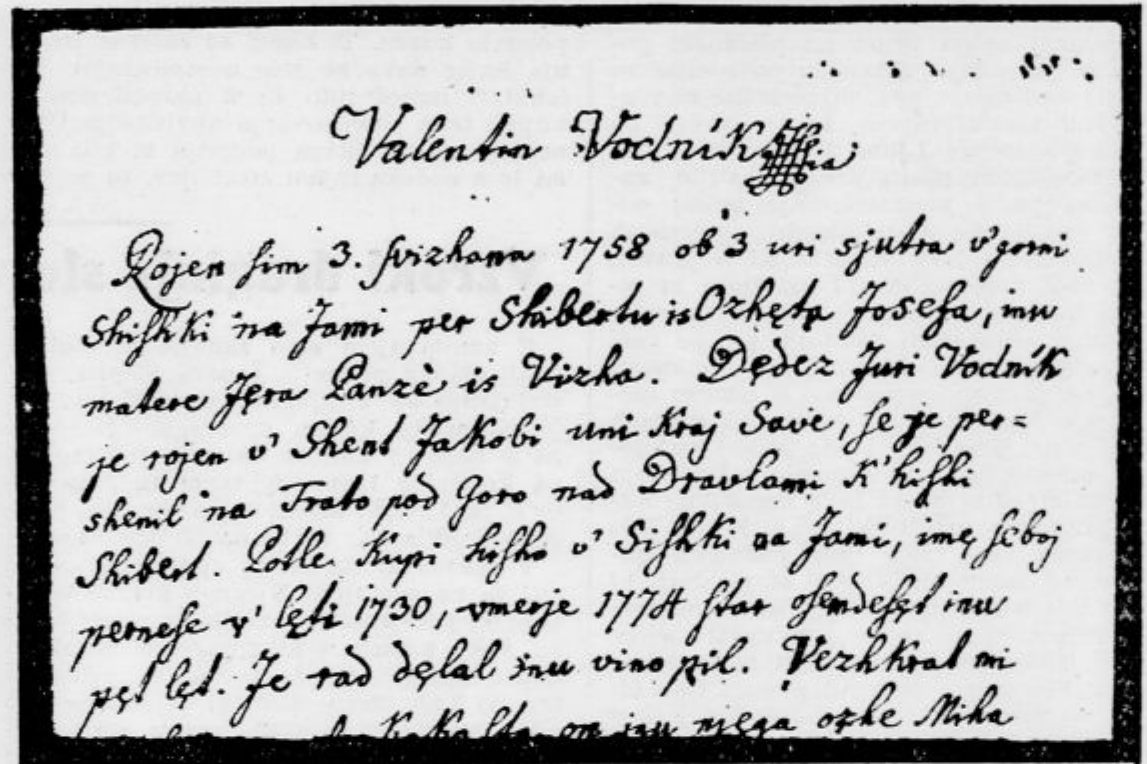 Valentin Vodník
Rojen sim 3. svizhana 1758 ob 3 uri sjutra v' gorni
Shishki na Jami per Shibertu is Ozhęta Josefa, inu
matere Jęra Panzè is Vizha. Dędez Juri Vodník
je rojen v' Shent Jakobi uni kraj Save, se je per=
shenil na Trato pod Goro nad Dravlami k' hishi
Shibert. Potle kupi hisho v' Sishki na Jami, imę seboj
pernese v' lęti 1730, vmerje 1774 star osemdesęt inu
pęt lęt. Je rad dęlal inu vino pil. Vezhkrat mi
on inu njega ozhe Miha